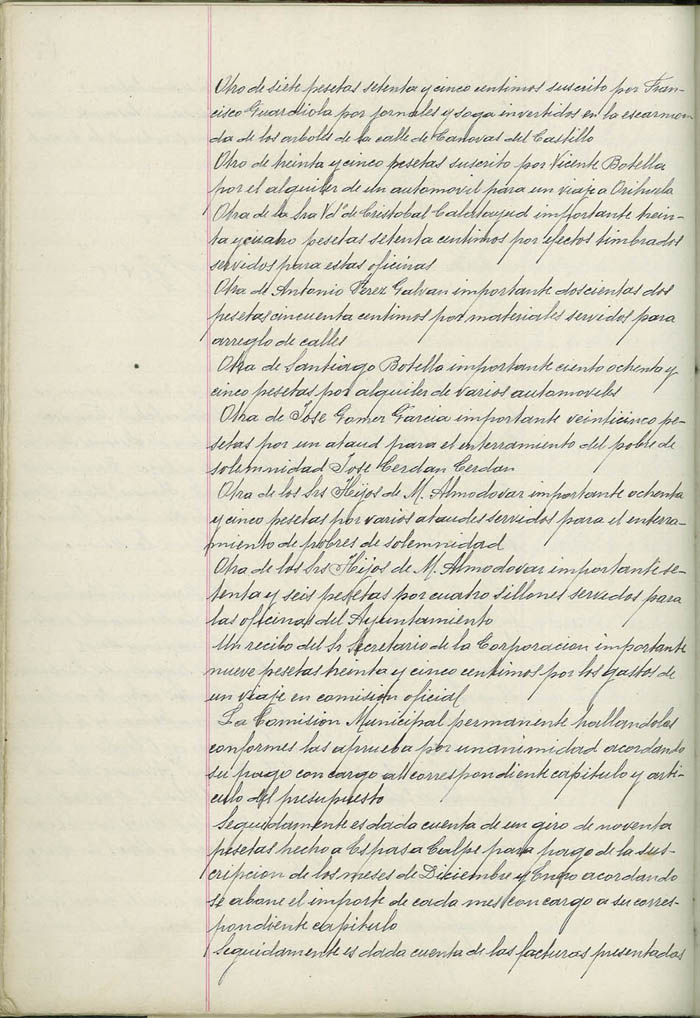 Otro de siete pesetas setenta y cinco centimos suscrito por Fran-
cisco Guardiola por jornales y soga invertidos en la escarmon
da de los arboles de la calle de Canovas del Castillo
Otro de treinta y cinco pesetas suscrito por Vicente Botella
por el alquiler de un automovil para un viaje a Orihuela
Otra de la Sra Vdª de Cristobal Calatayud importante trein-
ta y cuatro pesetas setenta centimos por efectos timbrados
servidos para estas oficinas
Otra de Antonio Perez Galvan importante doscientas dos
pesetas cincuenta centimos por materiales servidos para
arreglo de calles
Otra de Santiago Botella importante ciento ochenta y
cinco pesetas por alquiler de varios automoviles
Otra de Jose Gomez Garcia importante veinticinco pe-
setas por un ataud para el enterramiento del pobre de
solemnidad Jose Cerdan Cerdan
Otra de los Srs Hijos de M. Almodovar importante ochenta
y cinco pesetas por varios ataudes servidos para el enterra-
miento de pobres de solemnidad
Otra de los Srs Hijos de M. Almodovar importante se-
tenta y seis pesetas por cuatro sillones servidos para
las oficinas del Ayuntamiento
Un recibo del Sr Secretario de la Corporacion importante
nueve pesetas treinta y cinco centimos por los gastos de
un viaje en comision oficial
La Comision Municipal permanente hallandolas
conformes las aprueba por unanimidad acordando
su pago con cargo al correspondiente capitulo y arti-
culo del presupuesto
Seguidamente es dada cuenta de un giro de noventa
pesetas hecho a Espasa Calpe para pago de la sus-
cripcion de los meses de Diciembre y Enero acordando
se abone el importe de cada mes con cargo a su corres-
pondiente capitulo
Seguidamente es dada cuenta de las facturas presentadas